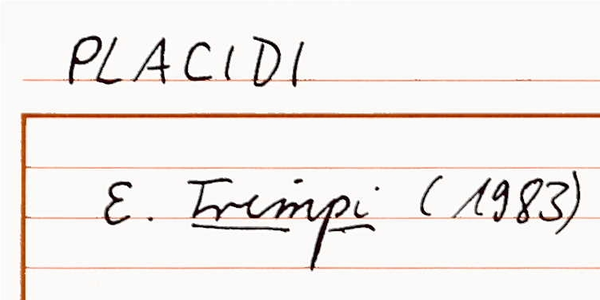 PLACIDI
E. Trimpi (1983)